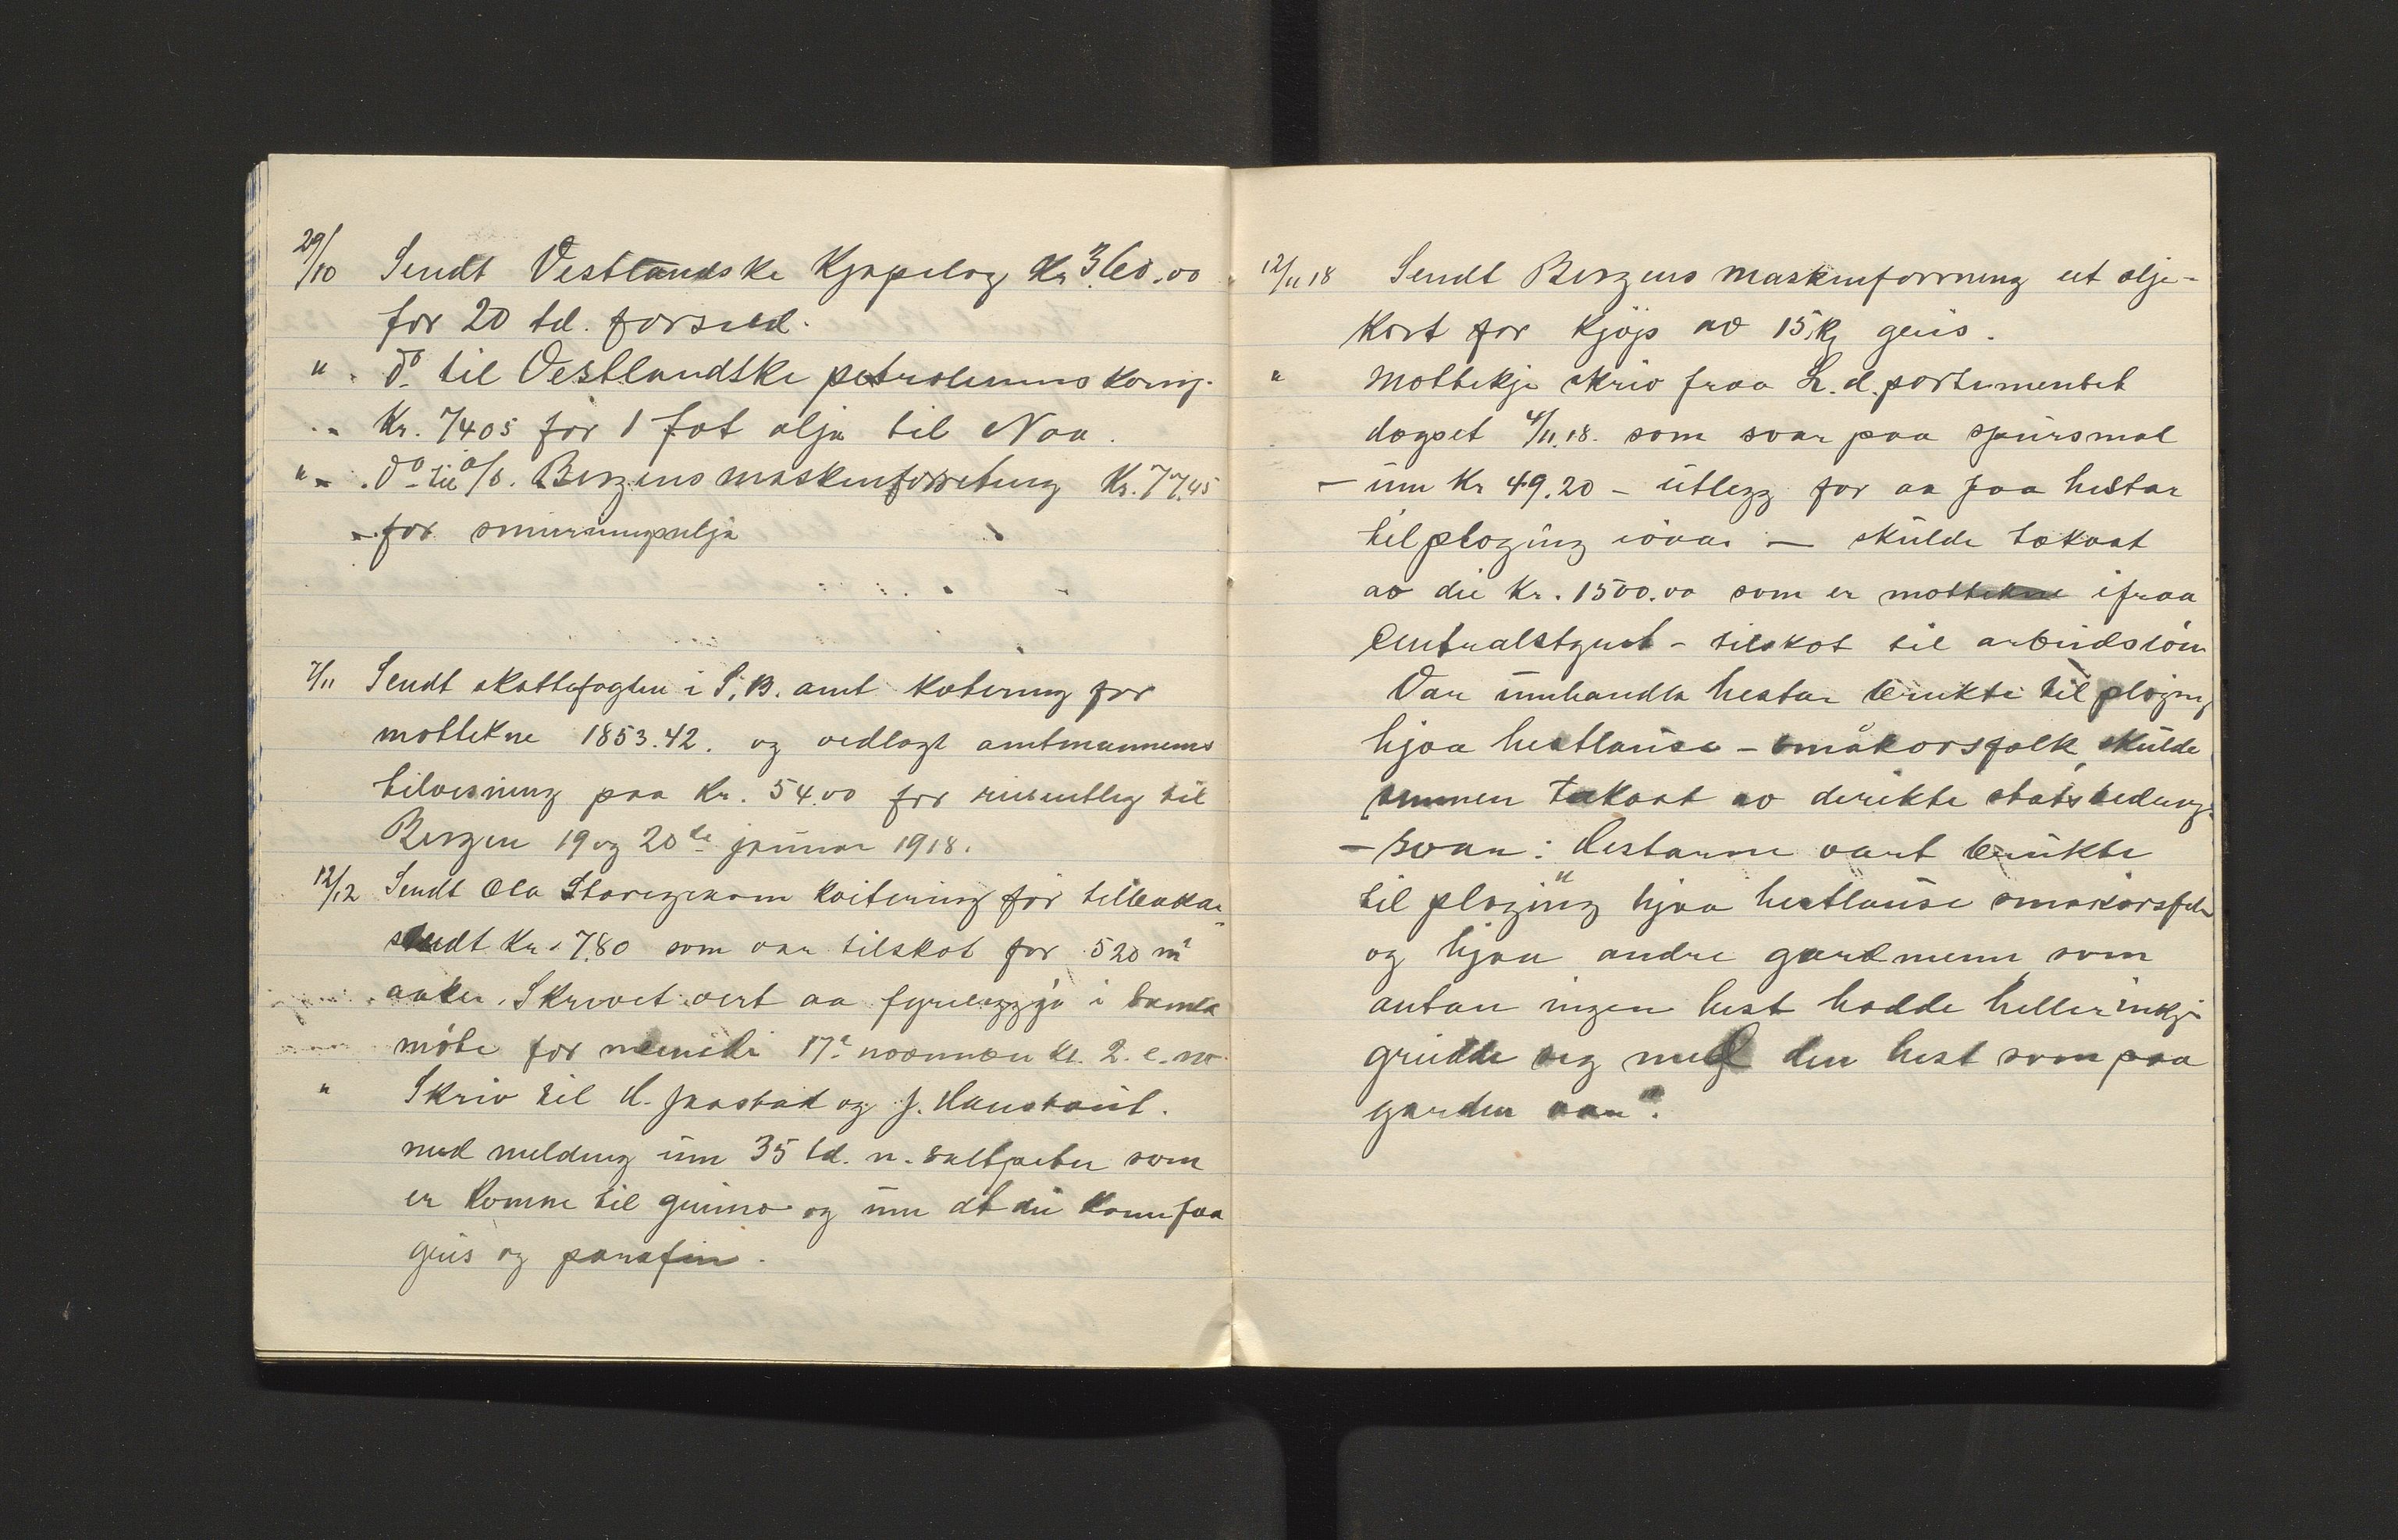 29/10 Sendt Vestlandske Kjøpelag Kr 360.00
for 20 td. forsild.
" do til Vestlandske petroleums komp.
Kr. 7405 for 1 fat olja til Naa.
" do til a/s. Bergens maskinforretning Kr. 77.45
for smurningsolja
7/11 Sendt skattefogden i S. B. amt kvitering for
mottekne 1853.42. og vedlagt amtmannens
tilvisning paa Kr. 54.00 for reiseutleg til
Bergen 19 og 20de januar 1918.
12/12 Sendt Ola kvitering for tilbaka-
sendt Kr. 7.80 som var tilskot for 520 m²
aaker. Skrivet vert aa fyreleggja i
møte for nemndi 17de kl. 2. e. m.
" Skriv til H. Jaastad og J.
med melding um 35 td. n. saltpeter som
er komne til Grimo og um at dei kann faa
geis og parafin.
12/11 18 Sendt Bergens maskinforrning eit olje-
kort for kjøp av 15 kg geis.
" Mottekje skriv fraa L. departementet
dagset 4/11.18. som svar paa spursmal
– um Kr 49.20 – utlegg for aa faa hestar
til pløging iovar — skulde takast
av dei Kr. 1500.00 som er mottekne ifraa
Centralstyret – tilskot til arbeidsløn
Var umhandla hestar brukte til pløging
hjaa hestlause – småkorsfolk, skulde
summen takast av direkte statsbeding
– svar: Hestarne vart brukte
til pløging hjaa hestlause
og hjaa andre gardmenn som
antan ingen hest hadde heller inkje
greidde seg med den hest som paa
garden var".